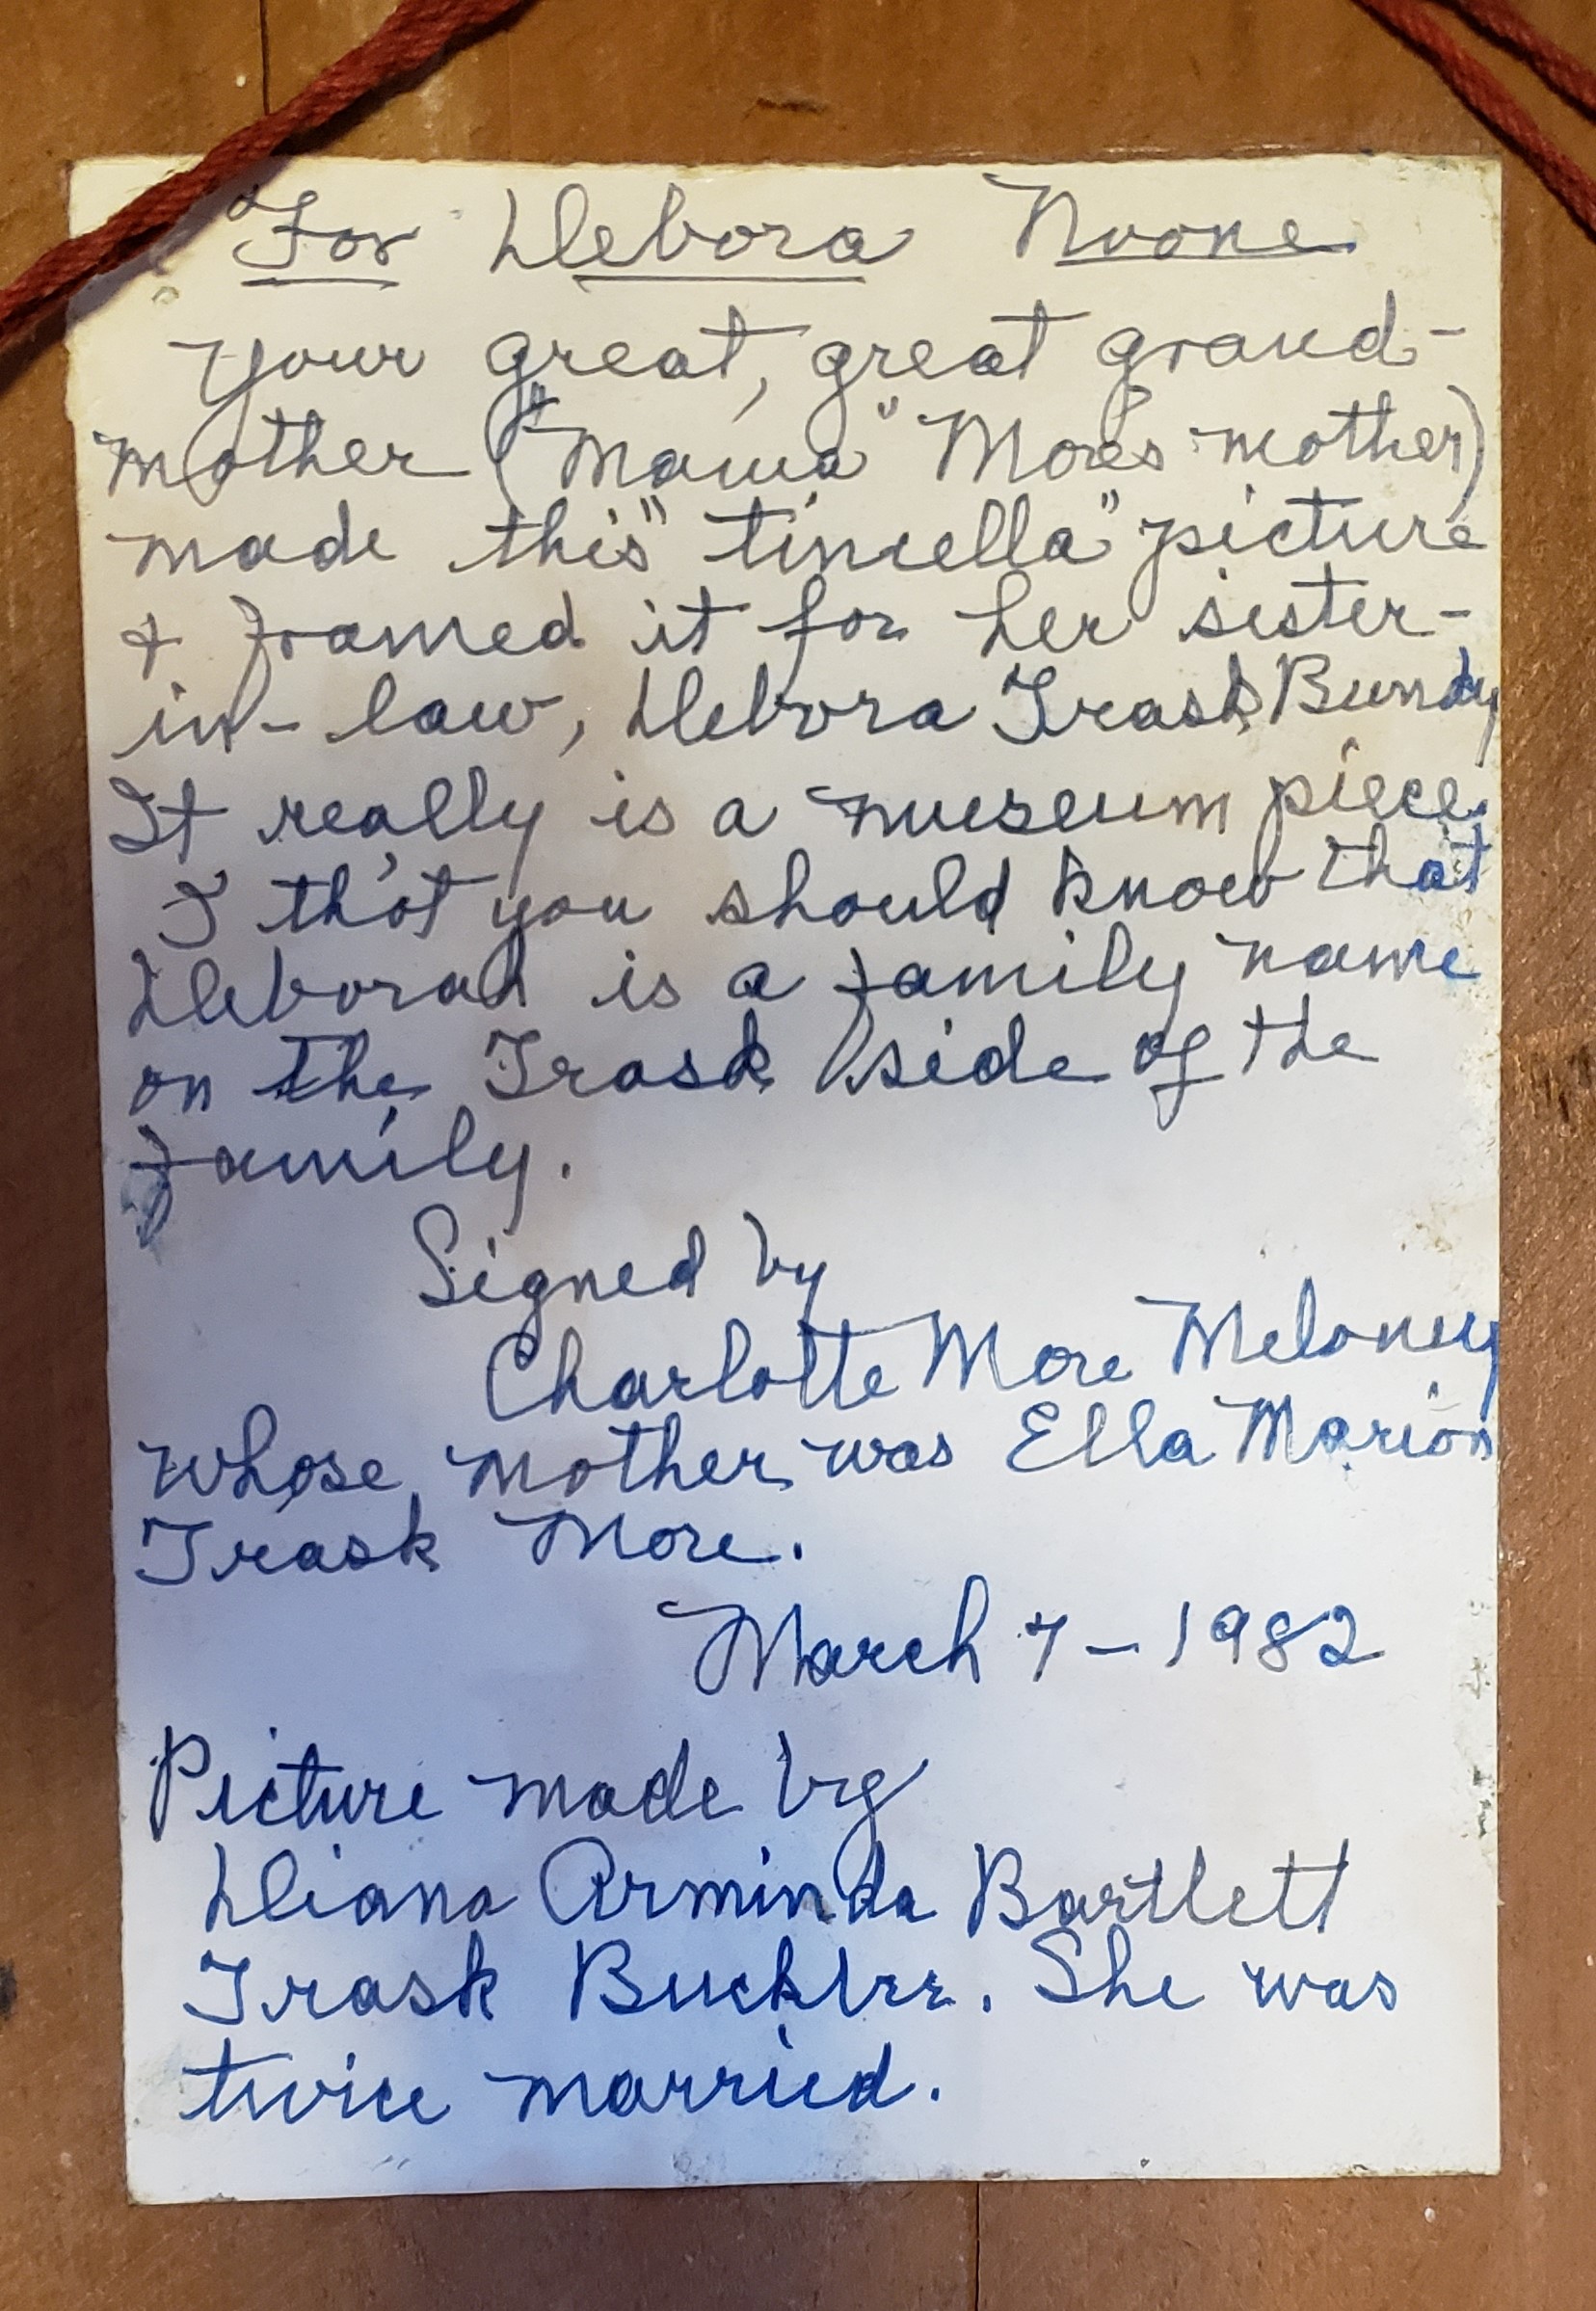 For Debora Noone
Your great, great grand-
mother ("Mama" More's mother)
made this "tincella" picture
& framed it for her sister-
in-law, Debora Trask Bundy
It really is a museum piece.
I tho't you should know that
Deborah is a family name
on the Trask side of the
family.
Signed by
Charlotte More Meloney
whose mother was Ella Marion
Trask More.
March 7-1982
Picture made by
Diana Arminda Bartlett
Trask Buckbee. She was
twice married.